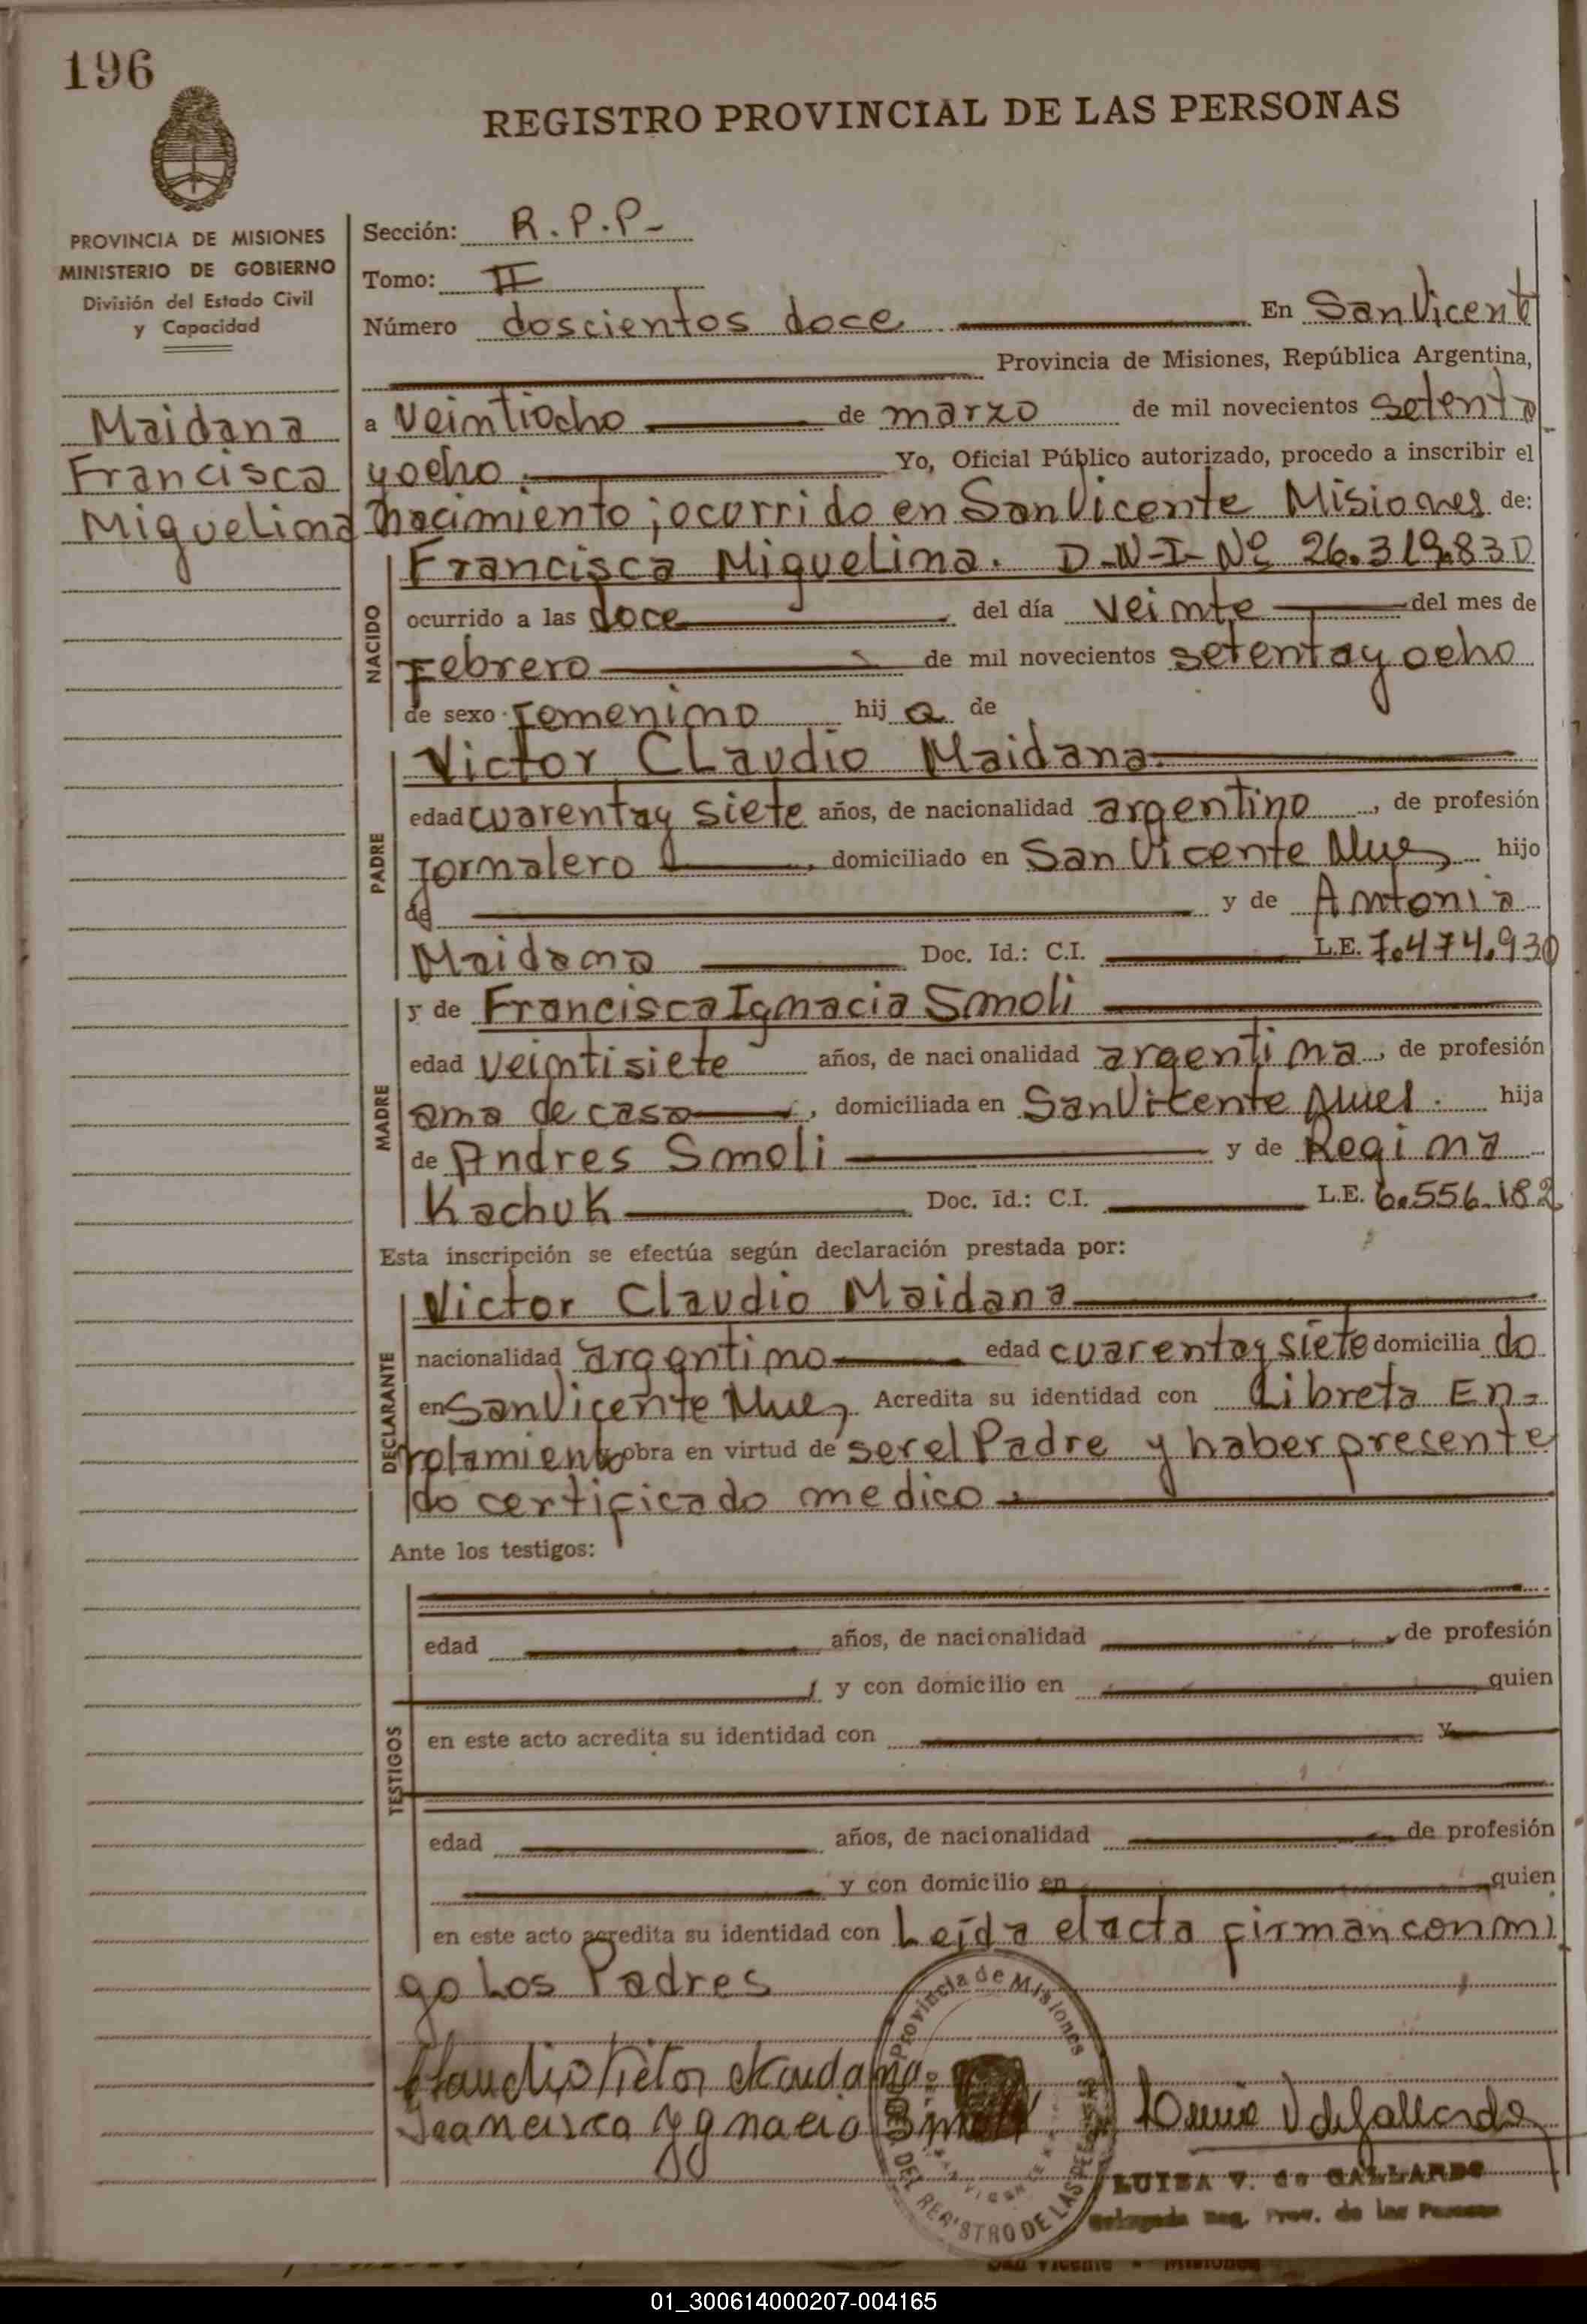 196
REGISTRO PROVINCIAL DE LAS PERSONAS
PROVINCIA DE MISIONES
MINISTERIO DE GOBIERNO
División del Estado Civil
y Capacidad
Maidana
Francisca
Miguelina
Sección: R.P.P-
Tomo: II
Número doscientos doce En San Vicente
Provincia de Misiones, República Argentina,
a veintiocho de marzo de mil novecientos setenta
y ocho Yo, Oficial Público autorizado, procedo a inscribir el
nacimiento; ocurrido en San Vicente Misiones de:
NACIDO
Francisca Miguelina. D-N-I-Nº 26.319.830
ocurrido a las doce del día veinte del mes de
Febrero de mil novecientos setenta y ocho
de sexo Femenino hija de
PADRE
Victor Claudio Maidana
edad cuarenta y siete años, de nacionalidad argentino, de profesión
Jornalero, domiciliado en San Vicente hijo
de y de Antonia
Maidana Doc. Id.: C.I. L.E. 7.474.930
MADRE
y de Francisca Ignacia Smoli
edad veintisiete años, de nacionalidad argentina, de profesión
ama de casa, domiciliada en San Vicente hija
de Andres Smoli y de Regina
Kachuk Doc. Id.: C.I. L.E. 6.556.182
Esta inscripción se efectúa según declaración prestada por:
DECLARANTE
Victor Claudio Maidana
nacionalidad argentino edad cuarenta y siete domicilia do
en San Vicente Acredita su identidad con Libreta En=
rolamiento y obra en virtud de ser el Padre y haber presente
do certificado medico.
Ante los testigos:
TESTIGOS
edad años, de nacionalidad de profesión
y con domicilio en quien
en este acto acredita su identidad con y
edad años, de nacionalidad de profesión
y con domicilio en quien
en este acto acredita su identidad con Leída el acta firman conmi
go Los Padres
Claudio Victor Maidana
Francisca Ygnacia Smoli
Provincia de Misiones
DEL REGISTRO DE LAS PERSONAS
SAN VICENTE
LUISA V. de GALLARDO
Delegada Reg. Prov. de las Personas
San Vicente - Misiones
01_300614000207-004165